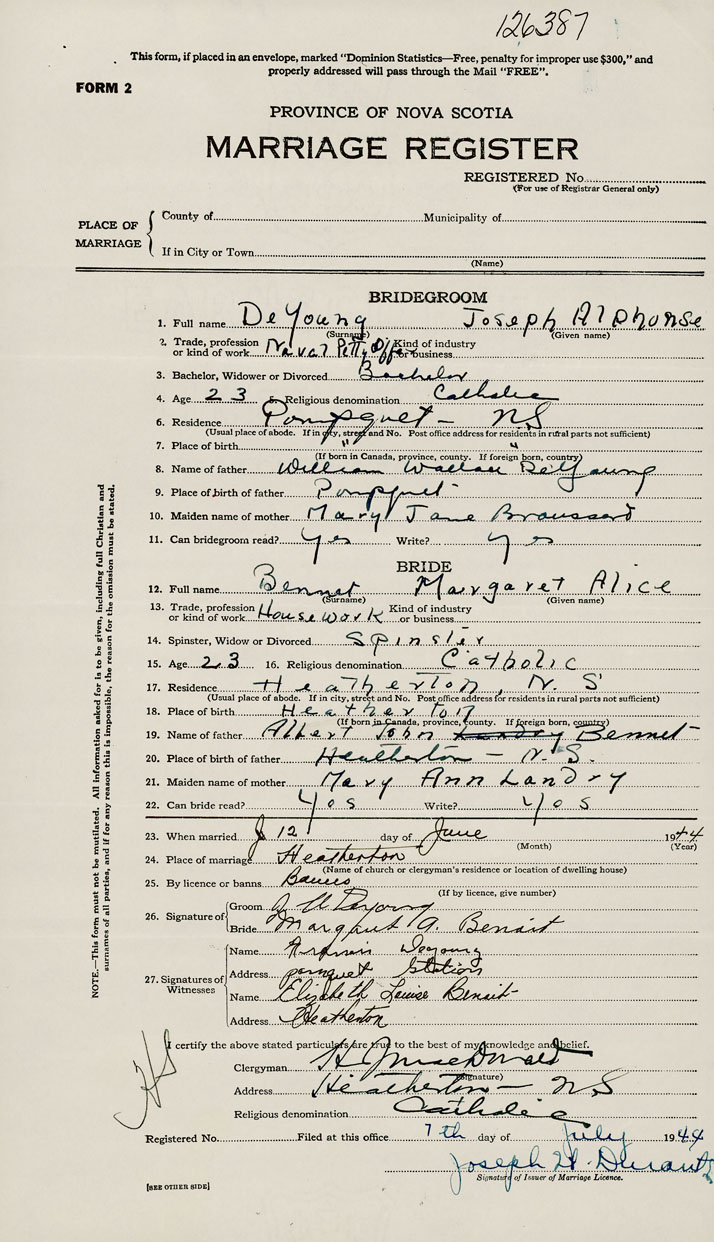 126387
This form, if placed in an envelope, marked "Dominion Statistics—Free, penalty for improper use $300," and
properly addressed will pass through the Mail "FREE".
FORM 2
PROVINCE OF NOVA SCOTIA
MARRIAGE REGISTER
REGISTERED No.
(For use of Registrar General only)
PLACE OF MARRIAGE
County of Municipality of
If in City or Town
(Name)
BRIDEGROOM
1. Full name DeYoung Joseph Alphonse
(Surname) (Given name)
2. Trade, profession or kind of work Naval Petty Officer Kind of industry or business
3. Bachelor, Widower or Divorced Bachelor
4. Age 23 5. Religious denomination Catholic
6. Residence Pompquet - NS
(Usual place of abode. If in city, street and No. Post office address for residents in rural parts not sufficient)
7. Place of birth " "
(If born in Canada, province, county. If foreign born, country)
8. Name of father William Wallace DeYoung
9. Place of birth of father Pompquet
10. Maiden name of mother Mary Jane Broussard
11. Can bridegroom read? Yes Write? Yes
BRIDE
12. Full name Bennet Margaret Alice
(Surname) (Given name)
13. Trade, profession or kind of work Housework Kind of industry or business
14. Spinster, Widow or Divorced Spinster
15. Age 23 16. Religious denomination Catholic
17. Residence Heatherton, N.S
(Usual place of abode. If in city, street and No. Post office address for residents in rural parts not sufficient)
18. Place of birth Heatherton
(If born in Canada, province, county. If foreign born, country)
19. Name of father Albert John Landry Bennet
20. Place of birth of father Heatherton - N.S.
21. Maiden name of mother Mary Ann Landry
22. Can bride read? Yes Write? Yes
23. When married 12 day of June 1944
(Month) (Year)
24. Place of marriage Heatherton
(Name of church or clergyman's residence or location of dwelling house)
25. By licence or banns Banns
(If by licence, give number)
26. Signature of
Groom Deyoung
Bride Margaret A. Benoit
27. Signatures of Witnesses
Name Deyoung
Address pomquet Station
Name Elizabeth Louise Benoit
Address Heatherton
I certify the above stated particulars are true to the best of my knowledge and belief.
Clergyman H. J. MacDonald
(Signature)
Address Heatherton - NS
Religious denomination Catholic
Registered No. Filed at this office 7th day of July 1944
Joseph H. Durant
Signature of Issuer of Marriage Licence.
[SEE OTHER SIDE]
NOTE.—This form must not be mutilated. All information asked for is to be given, including full Christian and
surnames of all parties, and if for any reason this is impossible, the reason for the omission must be stated.